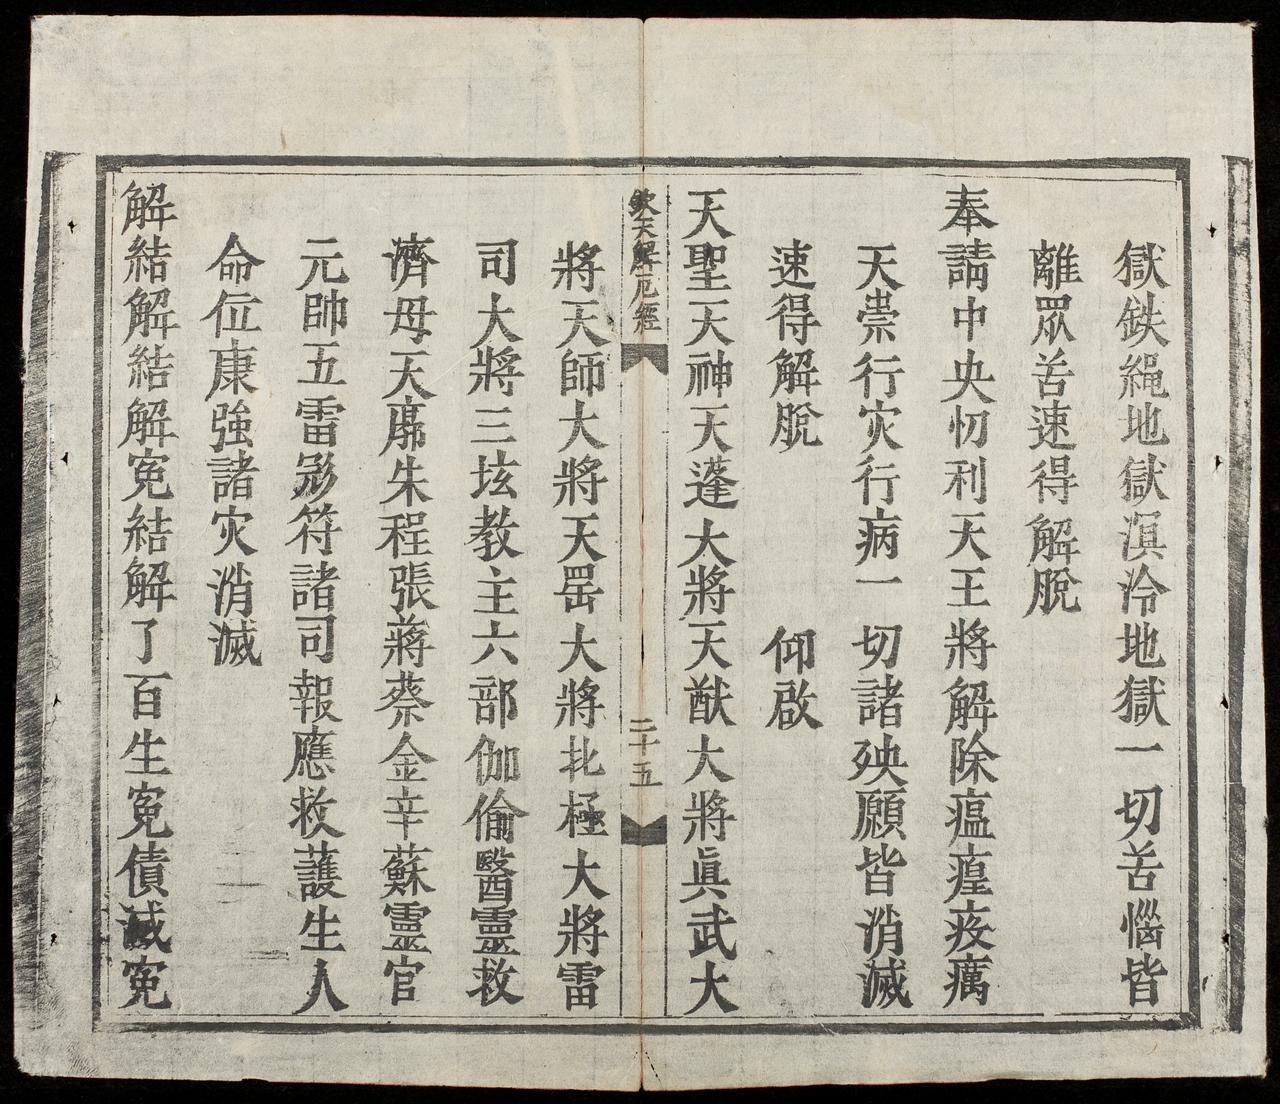 獄鉄繩地獄溟泠地獄一切苦惱皆
離眾苦速得解脫
奉請中央忉利天王將解除瘟瘟疫癘
天祟行灾行病一切諸殃願皆消滅
速得解脫　仰啟
天聖大神天蓬大將天猷大將眞武大
欽天解厄經
二十五
將天師大將天罡大將北極大將雷
司大將三坛教主六部伽偷醫靈救
濟母天廗朱程張蔣蔡金辛蘇靈官
元帥五雷彨符諸司報應救護生人
命位康強諸灾消滅
解結解結解冤結解了百生冤債滅冤